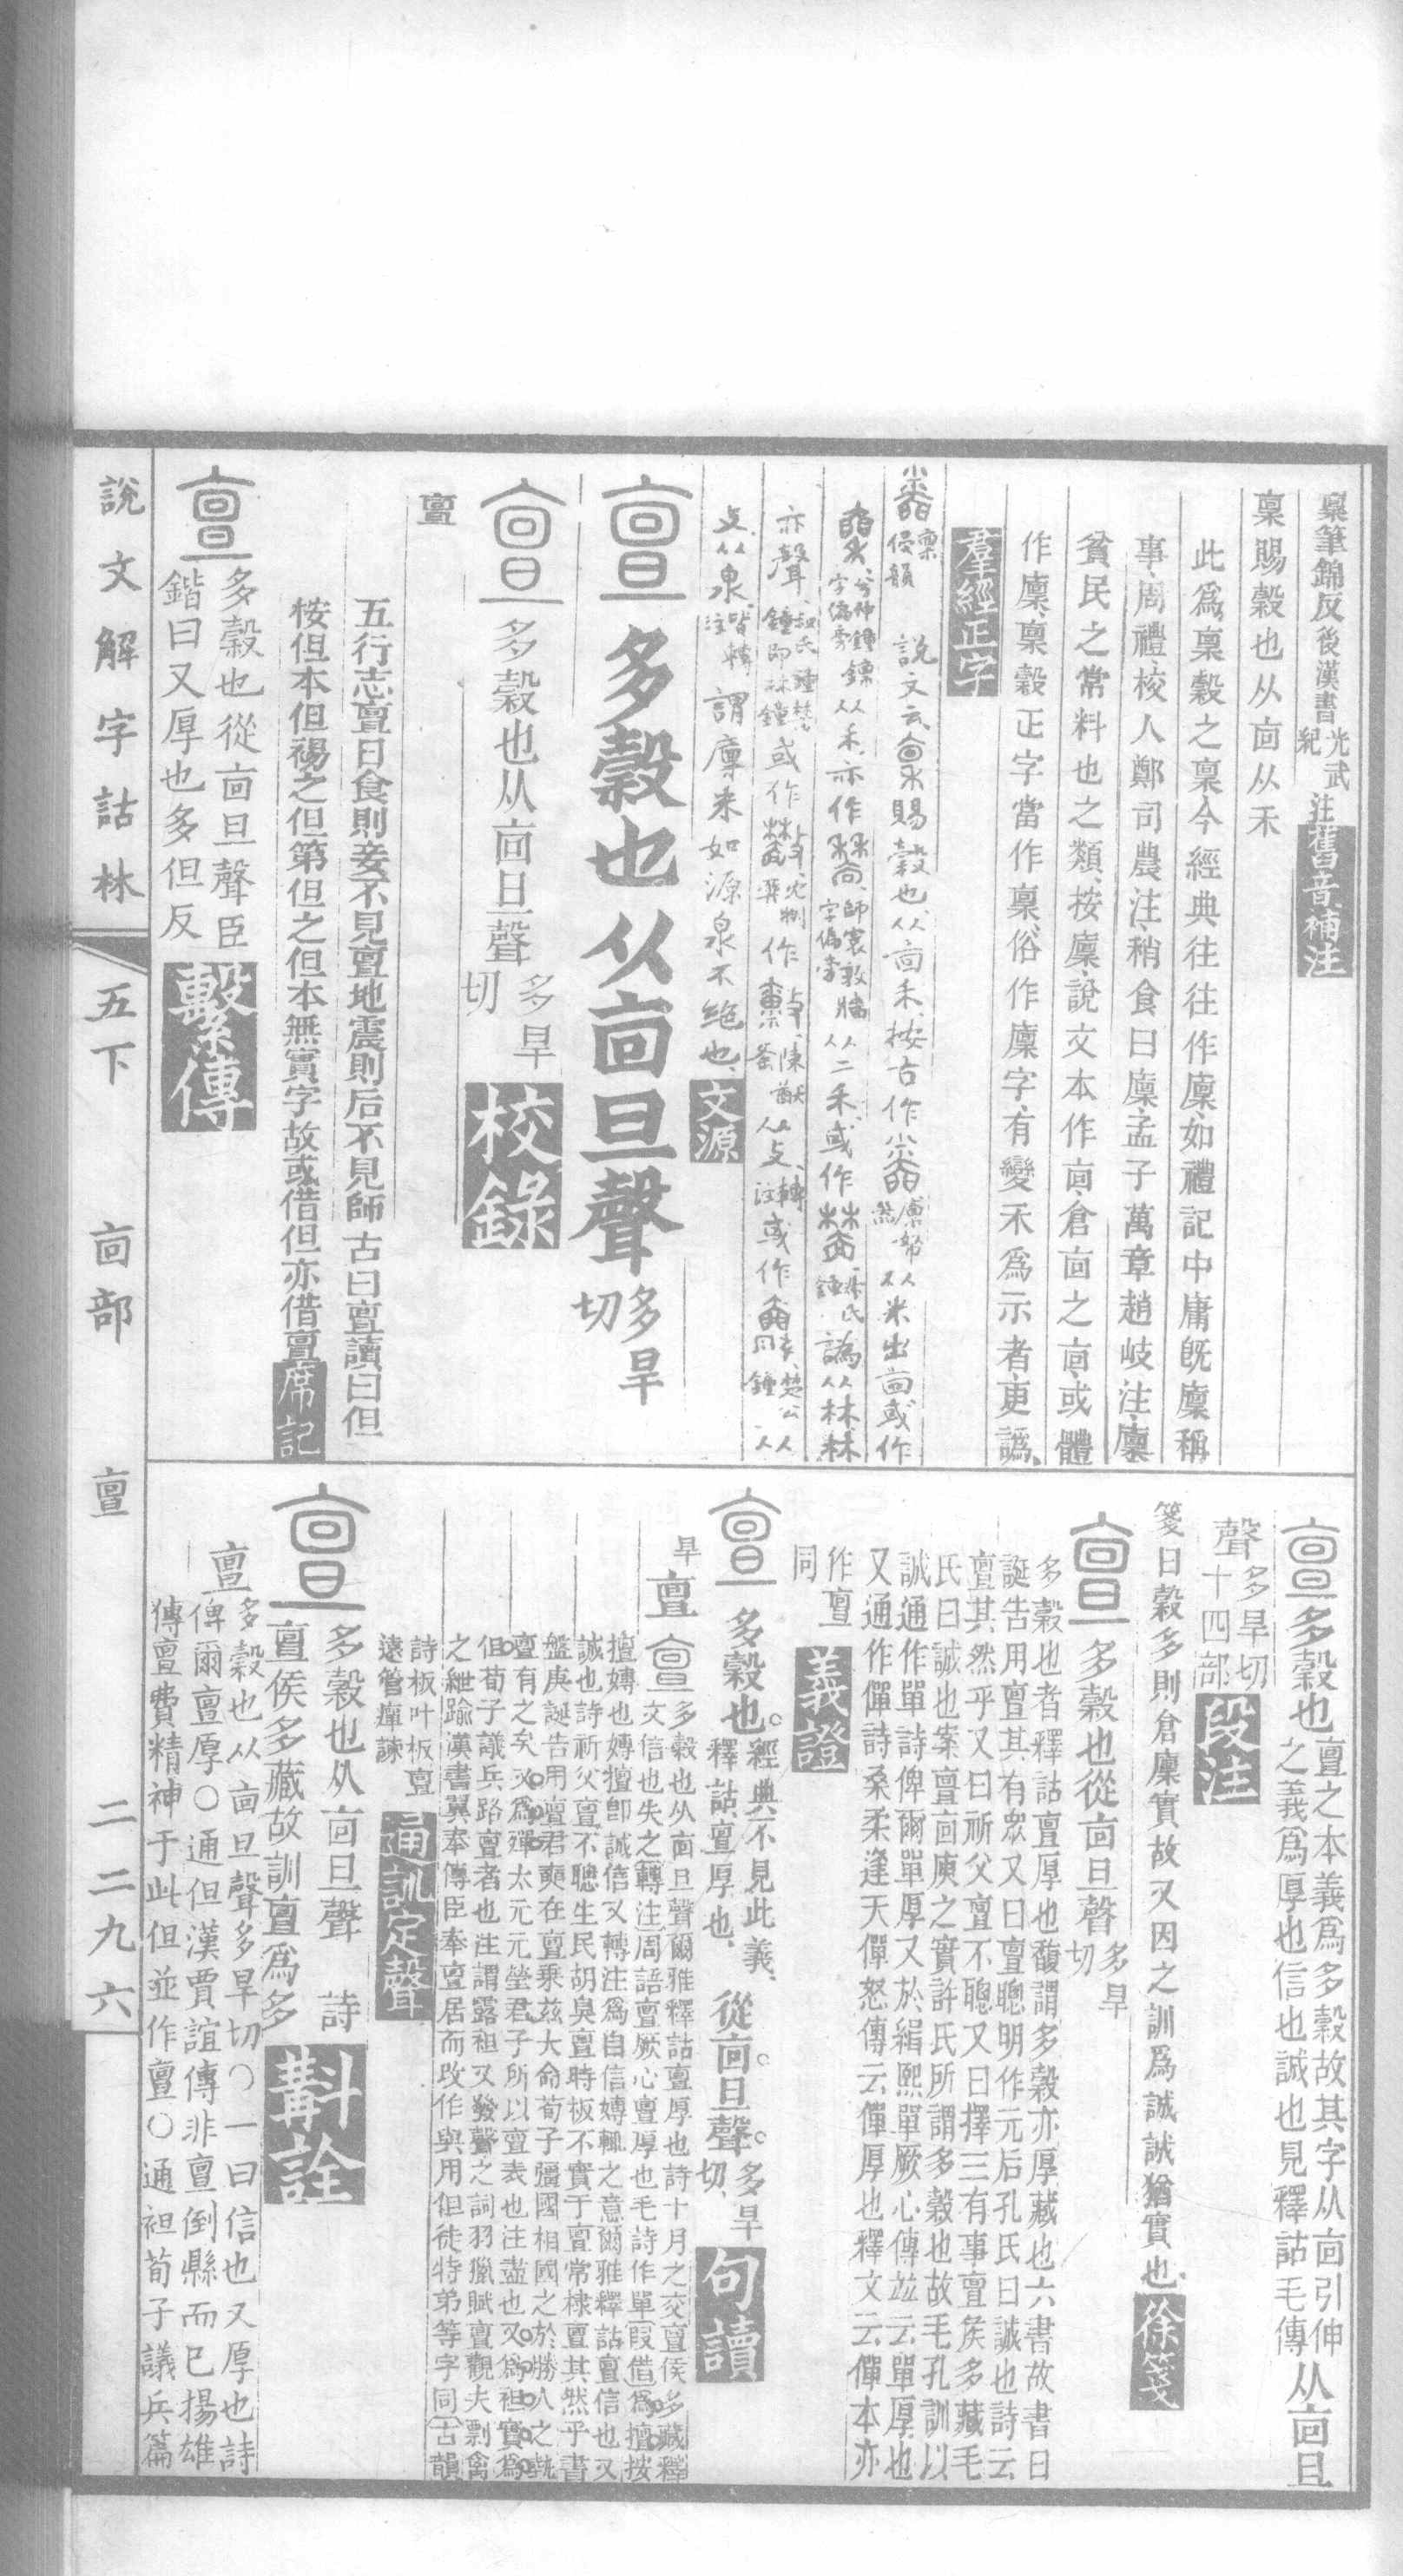 稟筆錦反後漢書光武紀注舊音補注
稟賜穀也从㐭从禾
此爲稟穀之稟今經典往往作廩如禮記中庸旣廩稱
事周禮校人鄭司農注稍食曰廩孟子萬章趙岐注廩
貧民之常料也之類按廩說文本作㐭倉㐭之㐭或體
作廩稟穀正字當作稟俗作廩字有變禾爲示者更譌
羣經正字
稟侵韻
說文云稟賜穀也从㐭禾按古作
从米出㐭或作
从禾亦作
从二禾或作
譌从林林
亦聲
或作
作
从攴轉注或作
从
攴从泉
謂廩來如源泉不絶也文源
亶多穀也从㐭旦聲多旱切
亶多穀也从㐭旦聲多旱切校錄
亶
五行志亶日食則妾不見亶地震則后不見師古曰亶讀曰但
桉但本但裼之但第但之但本無實字故或借但亦借亶席記
亶多穀也從㐭旦聲臣
鍇曰又厚也多但反繫傳
說文解字詁林
五下
㐭部
亶
二二九六
亶多穀也亶之本義爲多穀故其字从㐭引伸之義爲厚也信也誠也見釋詁毛傳从㐭旦
聲多旱切十四部段注
箋曰穀多則倉廩實故又因之訓爲誠誠猶實也徐箋
亶多穀也從㐭旦聲多旱切
多穀也者釋詁亶厚也馥謂多穀亦厚藏也六書故書曰
誕告用亶其有衆又曰亶聰明作元后孔氏曰誠也詩云
亶其然乎又曰祈父亶不聰又曰擇三有事亶矦多藏毛
氏曰誠也案亶㐭庾之實許氏所謂多穀也故毛孔訓以
誠通作單詩俾爾單厚又於緝熙單厥心傳竝云單厚也
又通作僤詩桑柔逢天僤怒傳云僤厚也釋文云僤本亦
作亶同義證
亶多穀也經典不見此義釋詁亶厚也從㐭旦聲多旱切句讀
旱
亶亶多穀也从㐭旦聲爾雅釋詁亶厚也詩十月之交亶侯多藏釋
文信也失之轉注周語亶厥心亶厚也毛詩作單假借爲擅按
擅嫥也嫥擅卽誠信又轉注爲自信嫥輒之意爾雅釋詁亶信也又
誠也詩祈父亶不聰生民胡臭亶時板不實于亶常棣亶其然乎書
盤庚誕告用亶君奭在亶乘茲大命荀子彊國相國之於勝人之埶
亶有之矣又爲殫太元元瑩君子所以亶表也注盡也又爲袒實爲
但荀子議兵路亶者也注謂露袒又發聲之詞羽獵賦亶觀夫剽禽
之紲踰漢書翼奉傳臣奉亶居而改作與用但徒特弟等字同古韻
詩板叶板亶
遠管癉諫通訓定聲
亶多穀也从㐭旦聲詩
亶侯多藏故訓亶爲多斠詮
亶多穀也从㐭旦聲多旱切〇一曰信也又厚也詩
俾爾亶厚〇通但漢賈誼傳非亶倒縣而已揚雄
傳亶費精神于此但並作亶〇通袒荀子議兵篇